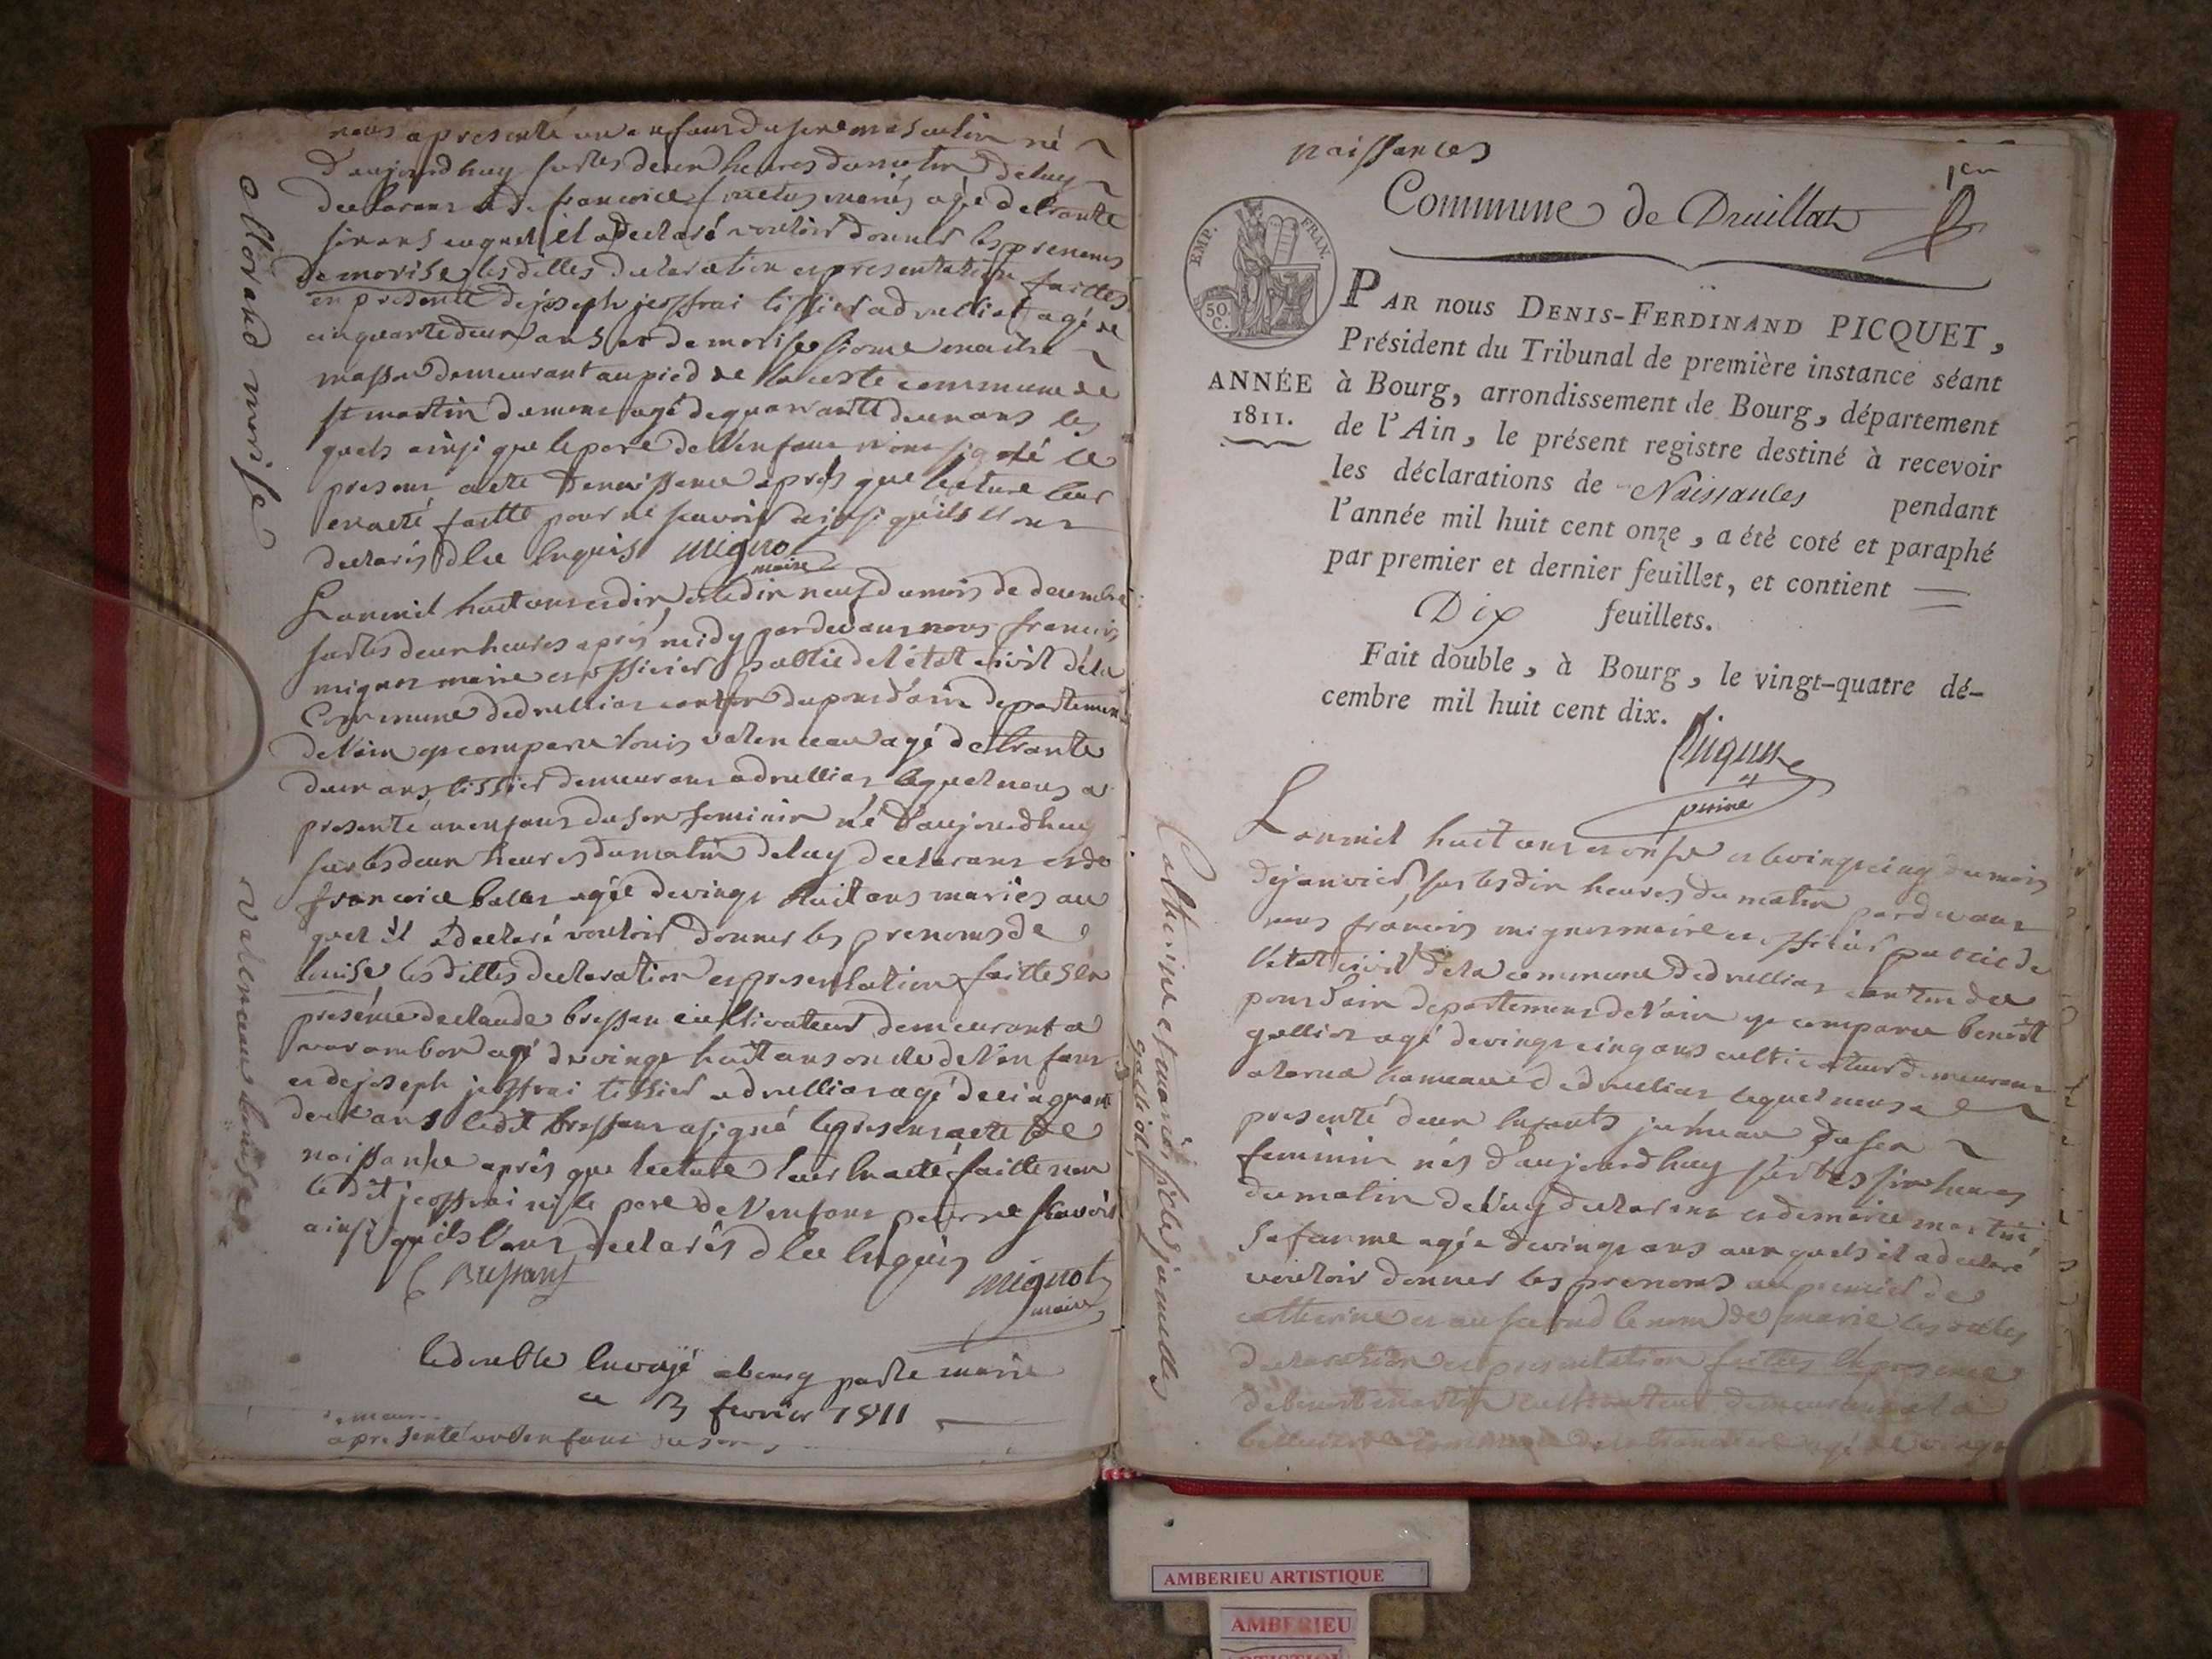 nous a presenté un enfans du sexe masculin né
d'aujourdhuy sur les deux heures du matin de luy
declarans et de francoice fructus mariés agée de trante
six ans auquel il a declaré vouloir donner les prenoms
de morise les dittes declaration et presentation faittes
en presence de joseph jeoffrai tissier a druillat agé de
cinquante deux ans et de morise maitre
masson demeurant au pied de la coste commune de
st martin du mont agé de quarante deux ans les
quels ainsi que le pere de l'enfans n'ont signé le
presens acte de naissance après que lecture leur
en a eté faitte pour ne scavoir ainsi qu'ils l'ons
declarés de ce enquis mignot
maire
morand morise
L'an mil huit cens et dix et le dix neuf du mois de decembre
sur les deux heures après midy par devans nous francois
mignot maire et officier public de l'état civil de la
Commune de druillat canton du pons d'ain departemens
de l'ain est comparu louis valenceau agé de trante
deux ans tissier demeurans a druillat lequel nous a
presenté un enfans du sex feminin né d'aujourdhuy
sur les deux heures du matin de luy declarans et de
francoice agée de vingt huit ans mariés au
quel il a declaré vouloir donner les prenoms de
louise les dittes declaration et presentation faittes en
presence de claude bressan cultivateur demeurant a
varambon agé de vingt huit ans oncle de l'enfans
et de joseph jeoffrai tissier a druillat agé de cinquante
deux ans ledit bressans a signé le presens acte de
naissance après que lecture leur en a eté faitte non
ledit jeoffrai ni le pere de l'enfans pour ne scavoir
ainsi qu'ils l'ons declarés de ce enquis
Bressans mignot
maire
valenceau louise
le double envoyé a bourg par le maire
ce 3 fevrier 1811
a presenté un enfans du sexe
naissances
1er
Commune de Druillat
EMP. FRAN.
50. C.
ANNÉE
1811.
PAR nous DENIS-FERDINAND PICQUET,
Président du Tribunal de première instance séant
à Bourg, arrondissement de Bourg, département
de l'Ain, le présent registre destiné à recevoir
les déclarations de Naissances pendant
l'année mil huit cent onze, a été coté et paraphé
par premier et dernier feuillet, et contient
Dix feuillets.
Fait double, à Bourg, le vingt-quatre dé-
cembre mil huit cent dix.
Picquet
L'an mil huit cens et onse et le vingt cinq du mois
de janvier sur les dix heures du matin par devans
nous francois mignot maire et officier public de
l'etat civil de la commune de druillat canton du
pons d'ain departemens de l'ain est comparu benoit
galliot agé de vingt cinq ans cultivateur demeurans
a hameau de druillat lequel nous a
presenté deux enfants jumeau du sex
feminin nés d'aujourdhuy sur les six heures
du matin de luy declarans et de marie martin
sa famme agée de vingt ans aux quels il a declaré
vouloir donner les prenoms au premier de
catherine et au second le nom de marie les dittes
declaration et presentation faittes en presence
de benoit martin cultivateur demeurant a
agé de vingt
Catherine et marie filles jumelles
galliot
AMBERIEU ARTISTIQUE
AMBERIEU
ARTISTIQUE